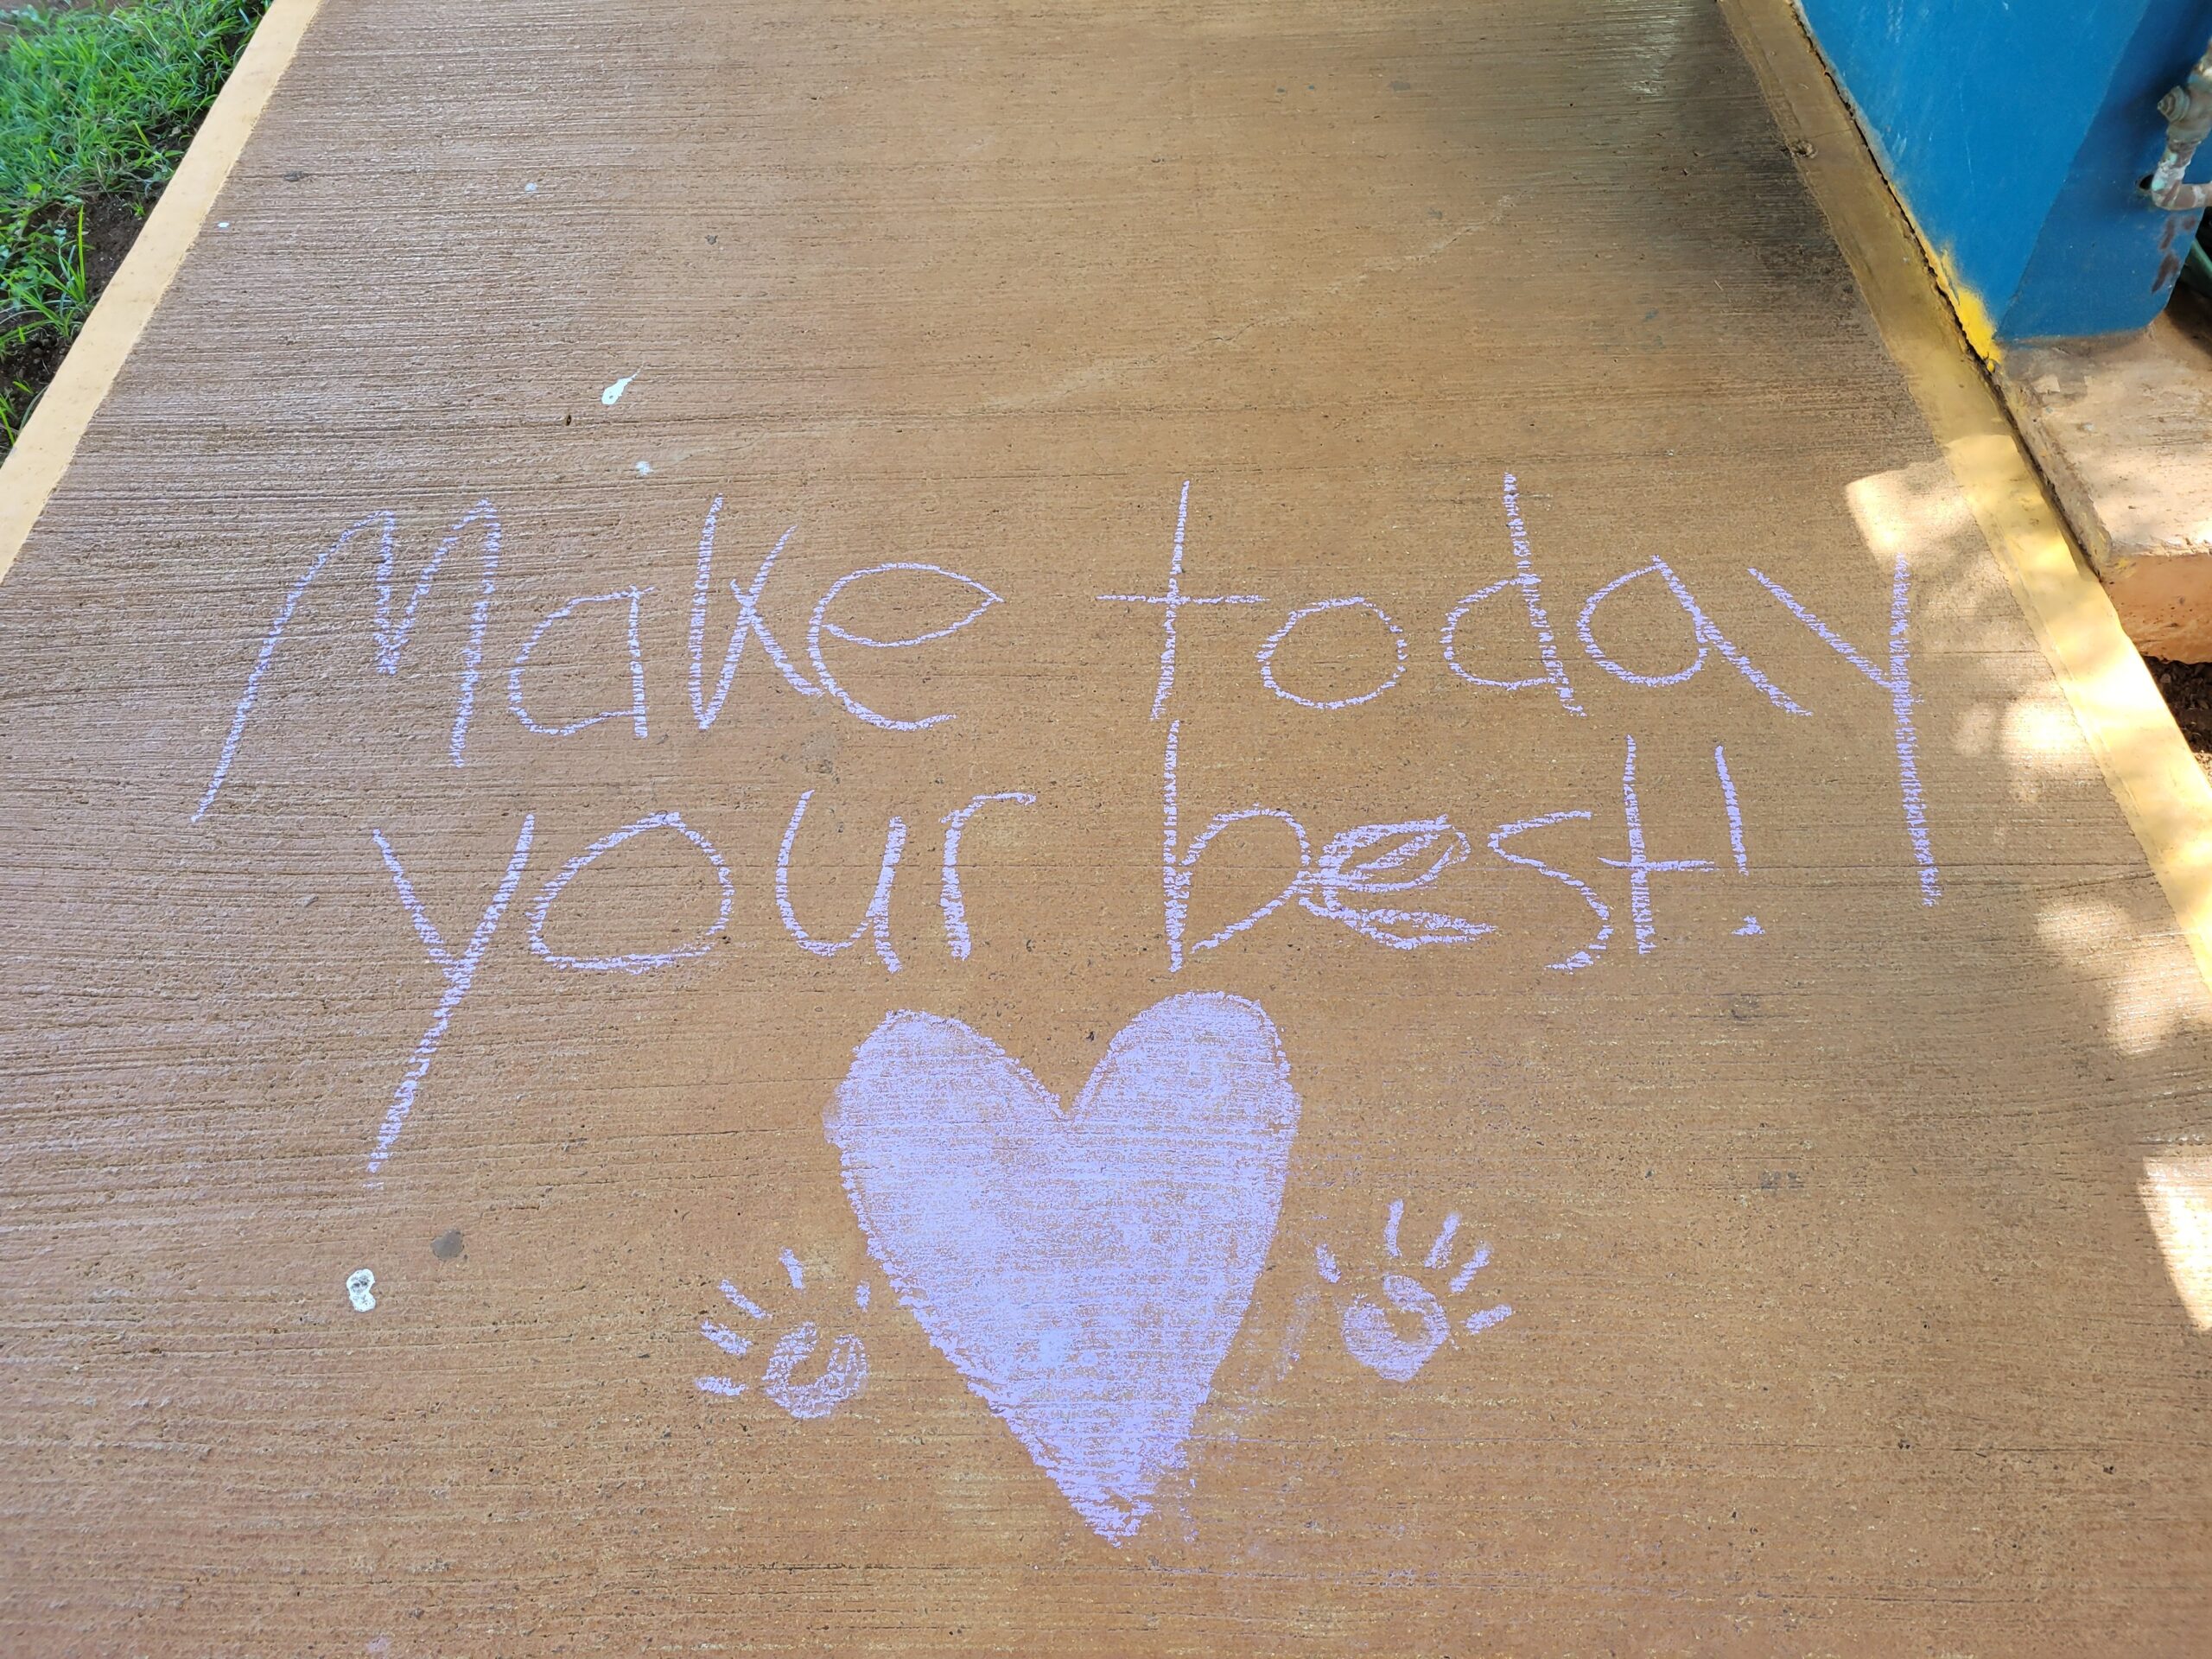 Make today
your best!